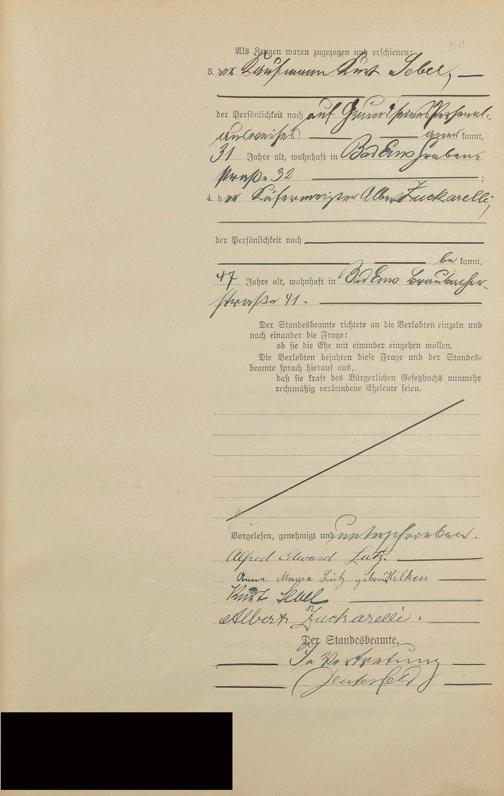 Als Zeugen waren zugezogen und erschienen:
3. der Kaufmann Kurt Sebel,
der Persönlichkeit nach auf Grund seines Personal-
ausweises kannt,
31 Jahre alt, wohnhaft in Bad Ems Graben-
straße 32 ;
4. der Küfermeister Albert Zuckarelli,
der Persönlichkeit nach
be kannt,
47 Jahre alt, wohnhaft in Bad Ems Braubacher-
straße 41.
Der Standesbeamte richtete an die Verlobten einzeln und
nach einander die Frage:
ob sie die Ehe mit einander eingehen wollen.
Die Verlobten bejahten diese Frage und der Standes-
beamte sprach hierauf aus,
daß sie kraft des Bürgerlichen Gesetzbuchs nunmehr
rechtmäßig verbundene Eheleute seien.
Vorgelesen, genehmigt und unterschrieben.
Alfred Edward Lutz.
Anna Maria Lutz geborne Hilken
Kurt Sebel
Albert Zuckarelli.
Der Standesbeamte.
In Vertretung